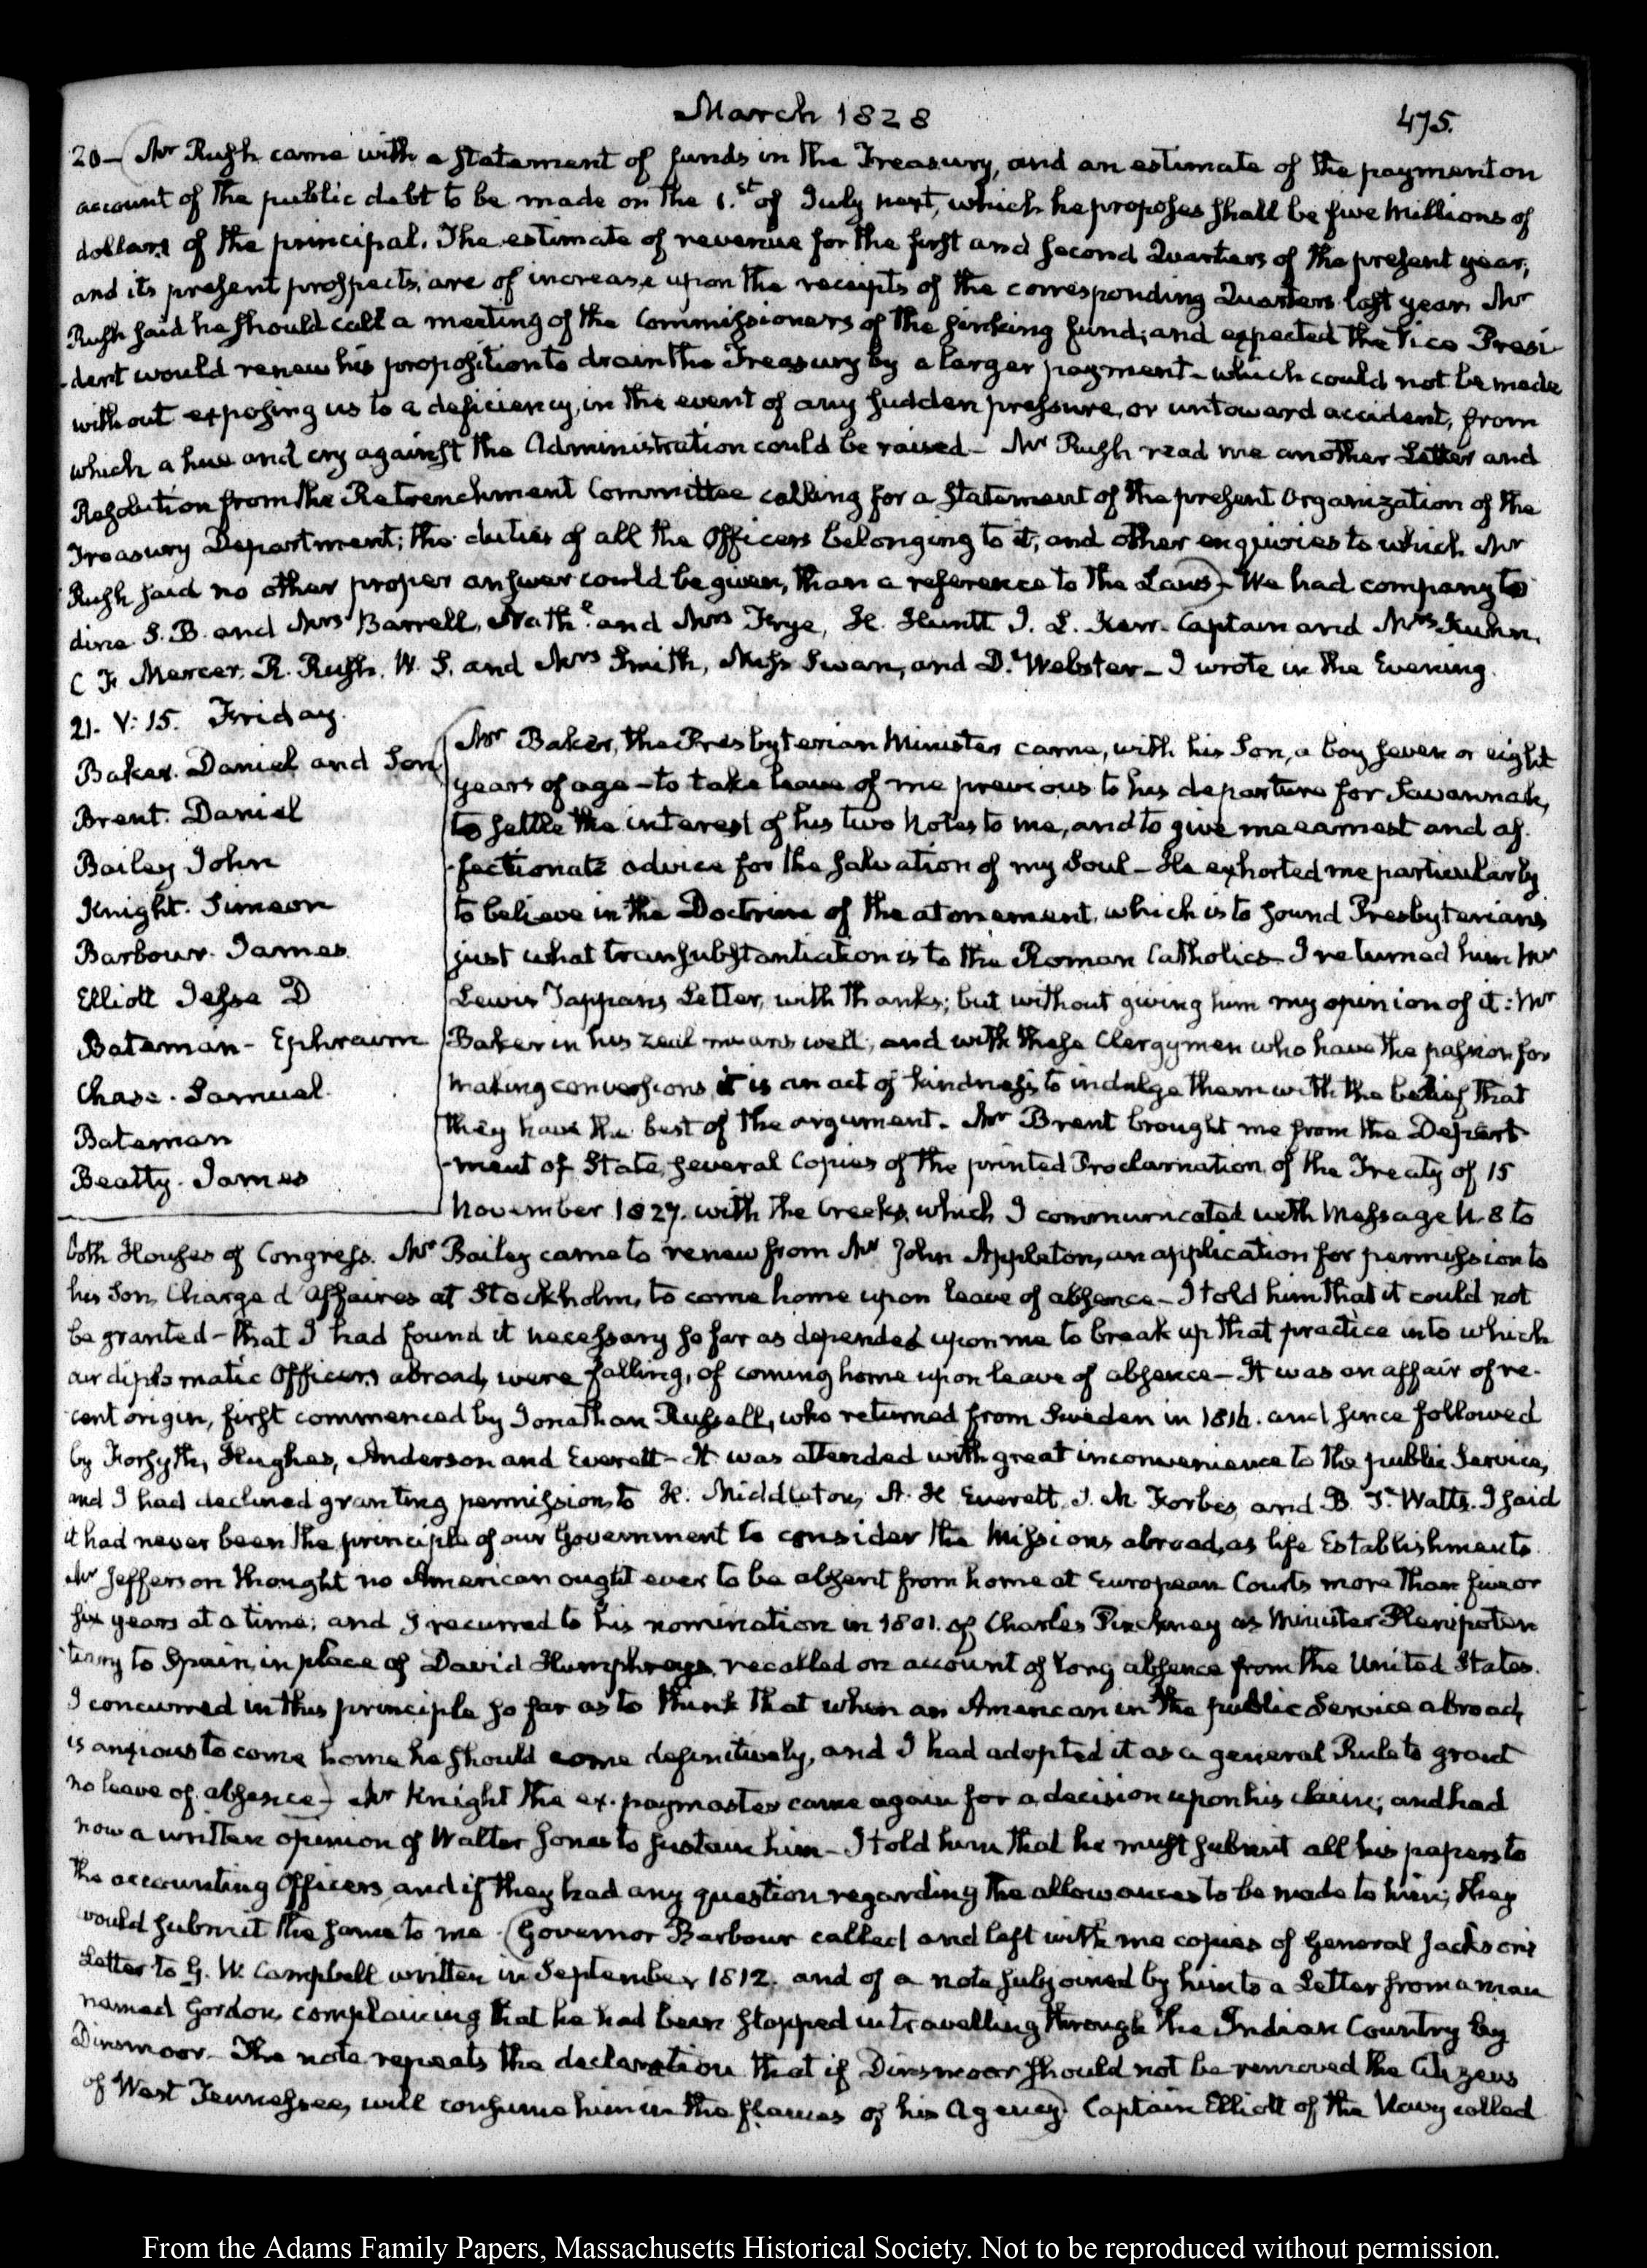 March 1828
475.
20 — Mr Rush came with a Statement of funds in the Treasury, and an estimate of the payment on
account of the public debt to be made on the 1.st of July next, which he proposes shall be five Millions of
dollars of the principal. The estimate of revenue for the first and second Quarters of the present year,
and its present prospects, are of increase upon the receipts of the corresponding Quarters last year. Mr
Rush said he should call a meeting of the Commissioners of the sinking fund; and expected the Vice Presi-
-dent would renew his proposition to drain the Treasury by a larger payment — which could not be made
without exposing us to a deficiency, in the event of any sudden pressure, or untoward accident, from
which a hue and cry against the Administration could be raised — Mr Rush read me another Letter and
Resolution from the Retrenchment Committee calling for a statement of the present Organization of the
Treasury Department; the duties of all the Officers belonging to it, and other enquiries to which Mr
Rush said no other proper answer could be given, than a reference to the Laws) — We had company to
dine S. B. and Mrs Barrell, Nath.l and Mrs Frye, H. Huntt J. L. Kerr. Captain and Mrs Kuhn,
C F. Mercer, R. Rush. W. S. and Mrs Smith, Miss Swan, and D. Webster — I wrote in the Evening.
21. V: 15. Friday.
Baker. Daniel and Son
Brent. Daniel
Bailey John
Knight. Simeon
Barbour. James
Elliott Jesse D
Bateman - Ephraim
Chase. Samuel.
Bateman
Beatty. James
(Mr Baker, the Presbyterian Minister came, with his Son, a boy seven or eight
years of age — to take leave of me previous to his departure for Savannah,
to settle the interest of his two Notes to me, and to give me earnest and af-
-fectionate advice for the salvation of my Soul — He exhorted me particularly
to believe in the Doctrine of the atonement, which is to sound Presbyterians
just what transubstantiation is to the Roman Catholics — I returned him Mr
Lewis Tappan's Letter, with thanks; but without giving him my opinion of it: Mr
Baker in his zeal means well; and with these Clergymen who have the passion for
making conversions it is an act of kindness to indulge them with the belief that
they have the best of the argument. Mr Brent brought me from the Depart-
-ment of State, several Copies of the printed Proclamation of the Treaty of 15
November 1827. with the Creeks, which I communicated with Message N. 8 to
both Houses of Congress. Mr Bailey came to renew from Mr John Appleton, an application for permission to
his Son, Chargé d'Affaires at Stockholm, to come home upon leave of absence — I told him that it could not
be granted — that I had found it necessary so far as depended upon me to break up that practice into which
our diplomatic Officers abroad, were falling, of coming home upon leave of absence — It was an affair of re-
cent origin, first commenced by Jonathan Russell, who returned from Sweden in 1816. and since followed
by Forsyth, Hughes, Anderson and Everett — It was attended with great inconvenience to the public Service,
and I had declined granting permission to H. Middleton, A. H Everett, J. M. Forbes, and B. T. Watts. I said
it had never been the principle of our Government to consider the Missions abroad, as life Establishments.
Mr Jefferson thought no American ought ever to be absent from home at European Courts more than five or
six years at a time; and I recurred to his nomination in 1801. of Charles Pinckney as Minister Plenipoten
-tiary to Spain, in place of David Humphreys, recalled on account of long absence from the United States.
I concurred in this principle so far as to think that when an American in the public Service abroad,
is anxious to come home he should come definitively, and I had adopted it as a general Rule to grant
no leave of absence) — Mr Knight the ex. paymaster came again for a decision upon his claim; and had
now a written opinion of Walter Jones to sustain him — I told him that he must submit all his papers to
the accounting Officers and if they had any question regarding the allowances to be made to him; they
would submit the same to me. (Governor Barbour called and left with me copies of General Jackson's
Letter to G. W. Campbell written in September 1812. and of a note subjoined by him to a Letter from a man
named Gordon, complaining that he had been stopped in travelling through the Indian Country by
Dinsmoor — The note repeats the declaration that if Dinsmoor should not be removed the Citizens
of West Tennessee, will consume him in the flames of his Agency) Captain Elliott of the Navy called
From the Adams Family Papers, Massachusetts Historical Society. Not to be reproduced without permission.